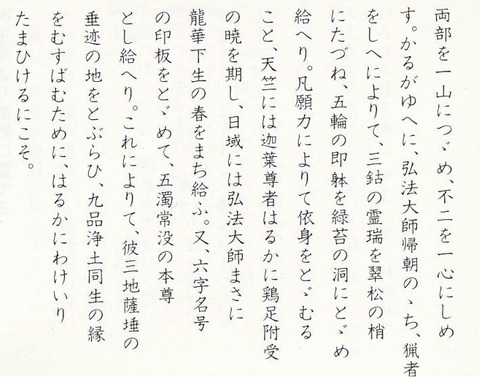 両部を一山につゞめ、不二を一心にしめ
す。かるがゆへに、弘法大師帰朝のゝち、猟者
をしへによりて、三鈷の霊瑞を翠松の梢
にたづね、五輪の即躰を緑苔の洞にとゞめ
給へり。凡願力によりて依身をとゞむる
こと、天竺には迦葉尊者はるかに鶏足附受
の暁を期し、日域には弘法大師まさに
龍華下生の春をまち給ふ。又、六字名号
の印板をとゞめて、五濁常没の本尊
とし給へり。これによりて、彼三地薩埵の
垂迹の地をとぶらひ、九品浄土同生の縁
をむすばむために、はるかにわけいり
たまひけるにこそ。